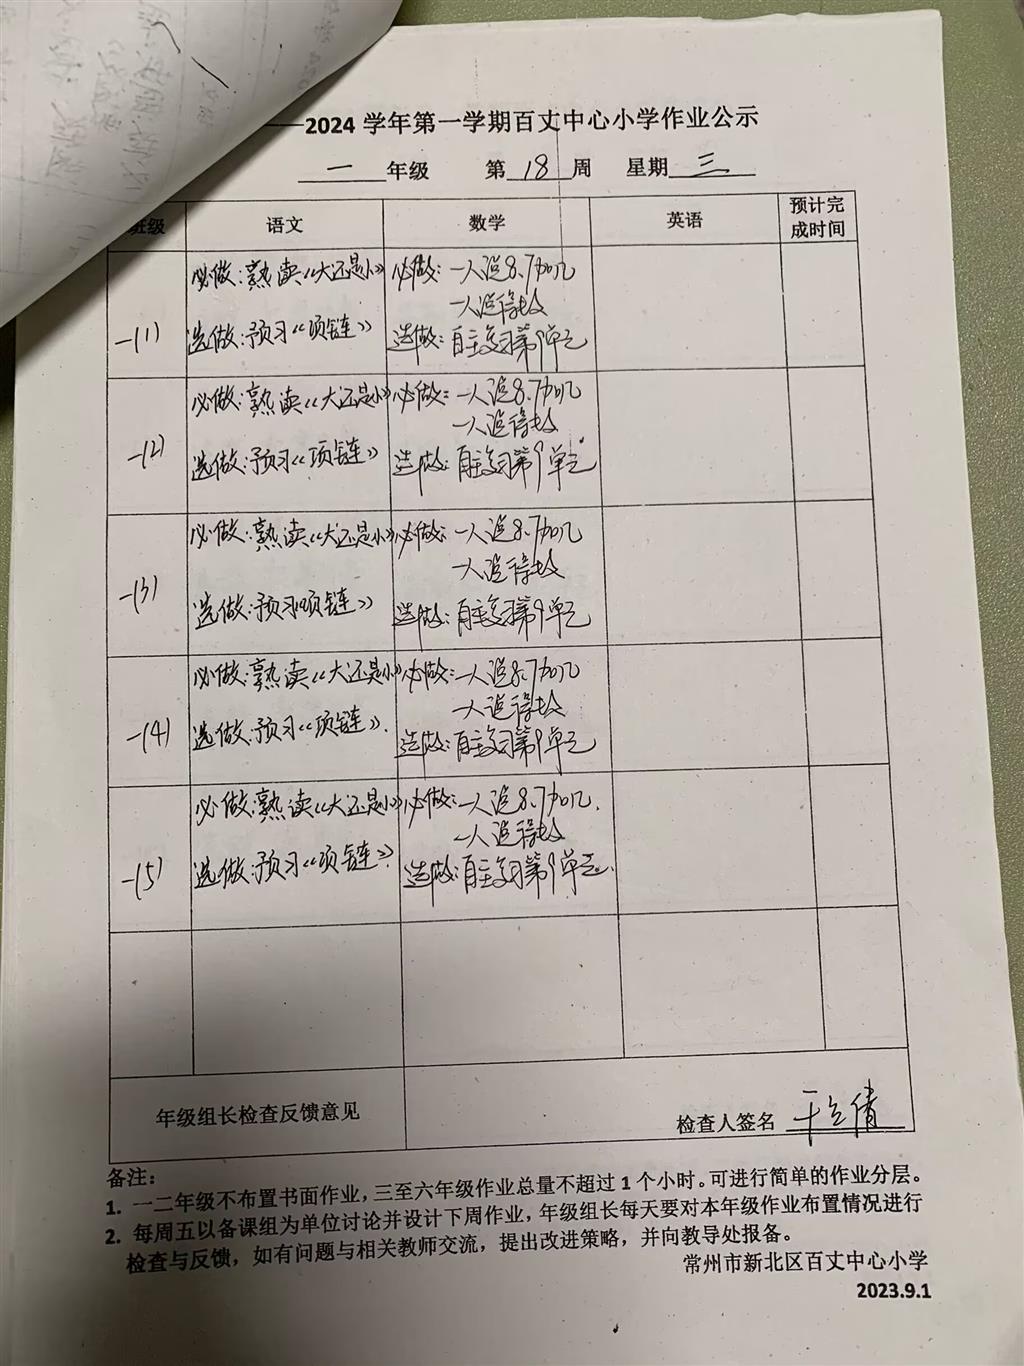 2024 学年第一学期百丈中心小学作业公示
一 年级 第 18 周 星期 三
班级 语文 数学 英语 预计完成时间
一(1) 必做:熟读《大还是小》 必做: 一人说8、7加几
一人说得数
选做:预习《项链》 选做:自主复习第9单元
一(2) 必做:熟读《大还是小》 必做: 一人说8、7加几
一人说得数
选做:预习《项链》 选做:自主复习第9单元
一(3) 必做:熟读《大还是小》 必做: 一人说8、7加几
一人说得数
选做:预习《项链》 选做:自主复习第9单元
一(4) 必做:熟读《大还是小》 必做: 一人说8、7加几
一人说得数
选做:预习《项链》. 选做:自主复习第9单元
一(5) 必做:熟读《大还是小》 必做: 一人说8、7加几.
一人说得数
选做:预习《项链》. 选做:自主复习第9单元.
年级组长检查反馈意见 检查人签名
备注:
1. 一二年级不布置书面作业，三至六年级作业总量不超过 1 个小时。可进行简单的作业分层。
2. 每周五以备课组为单位讨论并设计下周作业，年级组长每天要对本年级作业布置情况进行
检查与反馈，如有问题与相关教师交流，提出改进策略，并向教导处报备。
常州市新北区百丈中心小学
2023.9.1